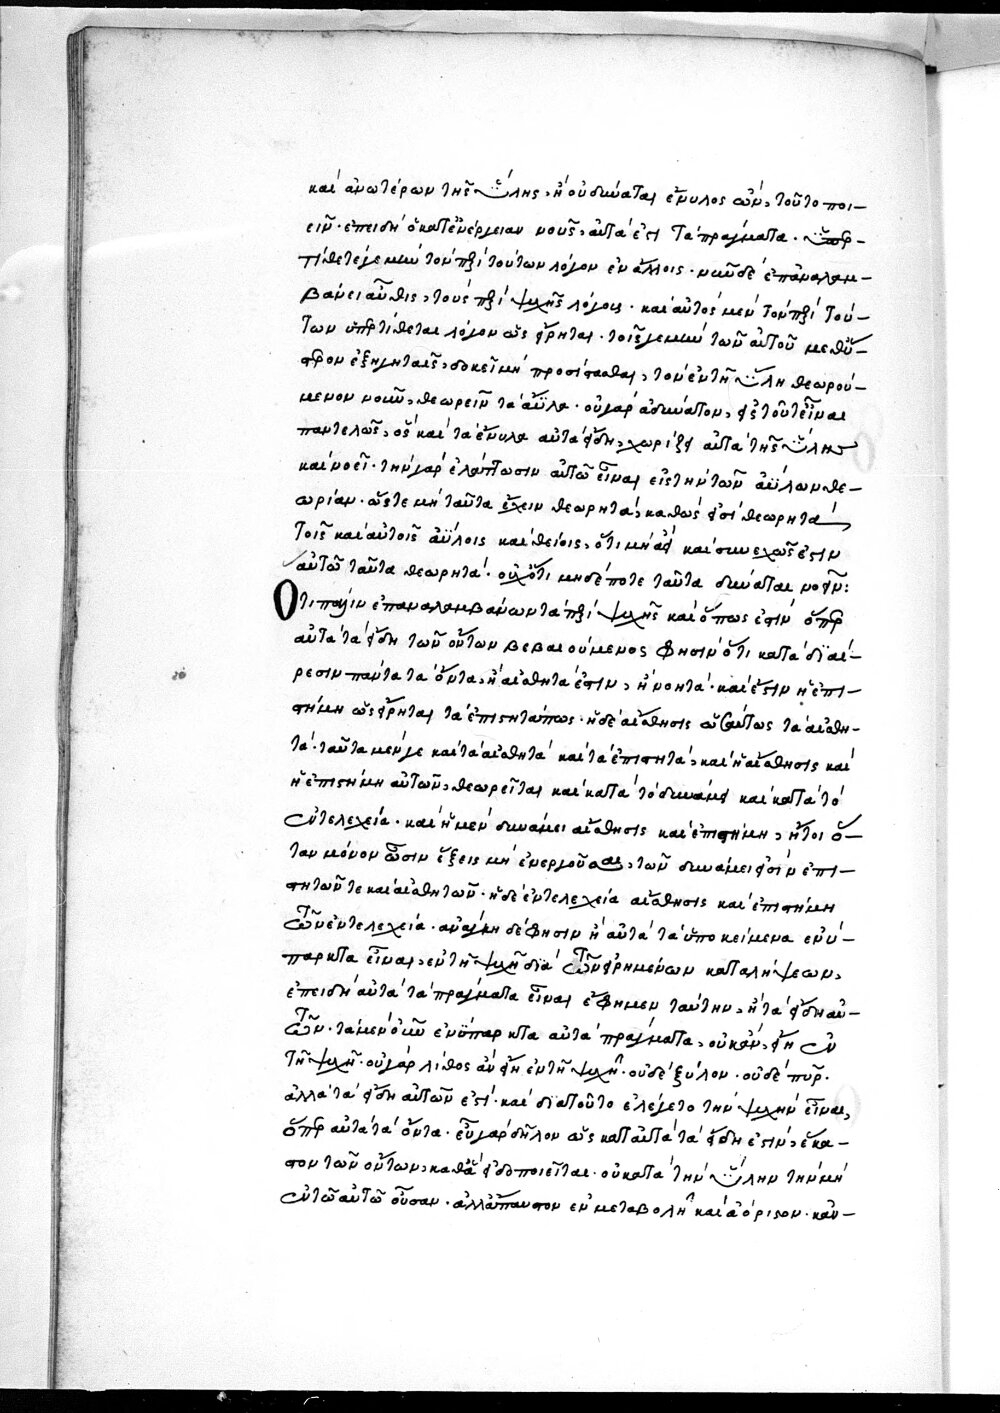 καὶ ἀνωτέρων τῆς ὕλης, ἢ οὐ δύναται ἔνυλος ὢν, τοῦτο ποι-
εῖν. ἐπειδὴ ὁ κατ' ἐνέργειαν νοῦς, αὐτά ἐστι τὰ πράγματα. ὑπερ-
τίθεται γε μὴν τὸν περὶ τούτων λόγον ἐν ἄλλοις. νῦν δὲ ἐπαναλαμ-
βάνει αὖθις, τοὺς περὶ ψυχῆς λόγους. καὶ αὐτὸς μὲν τὸν περὶ τού-
των ὑπερτίθεται λόγον ὡς εἴρηται. τοῖς γε μὴν τῶν αὐτοῦ μεθ' ὕ-
στερον ἐξηγηταῖς, δοκεῖ μὴ προσίστασθαι, τὸν ἐν τῇ ὕλῃ θεωρού-
μενον νοῦν, θεωρεῖν τὰ ἄϋλα. οὐ γὰρ ἀδύνατον, φασὶ τοῦτ' εἶναι
παντελῶς, ὃς καὶ τὰ ἔνυλα αὐτὰ εἴδη, χωρίζει αὐτὰ τῆς ὕλης
καὶ νοεῖ. τὴν γὰρ ἐλάττωσιν αὐτῶ εἶναι εἰς τὴν τῶν ἀΰλων θε-
ωρίαν. ὥστε μὴ ταῦτα ἔχειν θεωρητά, καθώς εἰσι θεωρητὰ
τοῖς καὶ αὐτοῖς ἀΰλοις καὶ θείοις, ὅτι μὴ ἀεὶ καὶ συνεχῶς ἐστὶν
αὐτῶ ταῦτα θεωρητά. οὐχ ὅτι μηδέποτε ταῦτα δύναται νοεῖν:
Ὅτι πάλιν ἐπαναλαμβάνων τὰ περὶ ψυχῆς καὶ ὅπως ἐστὶν ὅπερ
αὐτὰ τὰ εἴδη τῶν ὄντων βεβαιούμενος φησὶν ὅτι κατὰ διαί-
ρεσιν πάντα τὰ ὄντα, ἢ αἰσθητά ἐστιν, ἢ νοητά. καὶ ἔστιν ἡ ἐπι-
στήμη ὡς εἴρηται τὰ ἐπιστητά πως. ἡ δὲ αἴσθησις ὡσαύτως τὰ αἰσθη-
τά. ταῦτα μέν γε καὶ τὰ αἰσθητὰ καὶ τὰ ἐπιστητά, καὶ ἡ αἴσθησις καὶ
ἡ ἐπιστήμη αὐτῶν, θεωρεῖται καὶ κατὰ τὸ δυνάμει καὶ κατὰ τὸ
ἐντελεχεία. καὶ ἡ μὲν δυνάμει αἴσθησις καὶ ἐπιστήμη, ἤτοι ὅ-
ταν μόνον ὦσιν ἕξεις μὴ ἐνεργοῦσαι, τῶν δυνάμει εἰσὶν ἐπι-
στητῶν τε καὶ αἰσθητῶν. ἡ δὲ ἐντελεχεία αἴσθησις καὶ ἐπιστήμη
τῶν ἐντελεχεία. ἀνάγκη δὲ φησὶν ἢ αὐτὰ τὰ ὑποκείμενα ἐνύ-
παρκτα εἶναι, ἐν τῇ ψυχῇ διὰ τῶν εἰρημένων καταλήψεων,
ἐπειδὴ αὐτὰ τὰ πράγματα εἶναι ἔφημεν ταύτην, ἢ τὰ εἴδη αὐ-
τῶν. τὰ μὲν οὖν ἐνύπαρκτα αὐτὰ πράγματα, οὐκ ἂν, εἴη ἐν
τῇ ψυχῇ. οὐ γὰρ λίθος ἂν εἴη ἐν τῇ ψυχῇ. οὐδὲ ξύλον. οὐδὲ πῦρ.
ἀλλὰ τὰ εἴδη αὐτῶν ἐστί. καὶ διατοῦτο ἐλέγετο τὴν ψυχὴν εἶναι,
ὅπερ αὐτὰ τὰ ὄντα. εὖ γὰρ δῆλον ὡς κατ' αὐτὰ τὰ εἴδη ἐστὶν, ἕκα-
στον τῶν ὄντων, καθὰ εἰδοποιεῖται. οὐ κατὰ τὴν ὕλην τὴν μὴ
ἐν τῶ αὐτῶ οὖσαν. ἀλλ' ἅπαυστον ἐν μεταβολῇ καὶ ἀόριστον. κἀν-